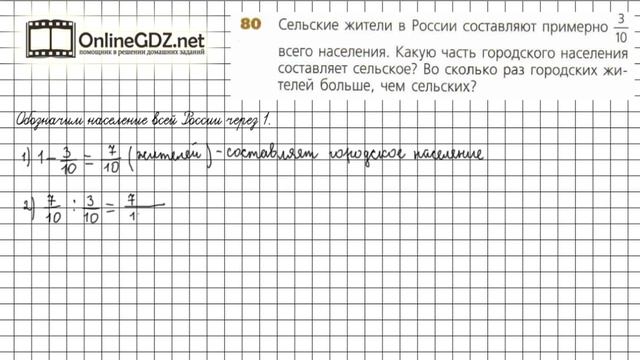 OnlineGDZ.net
помощник в решении домашних заданий
80 Сельские жители в России составляют примерно 3/10
всего населения. Какую часть городского населения
составляет сельское? Во сколько раз городских жи-
телей больше, чем сельских?
Обозначим население всей России через 1.
1) 1 - 3/10 = 7/10 (жителей) - составляет городское население
2) 7/10 : 3/10 = 7/1